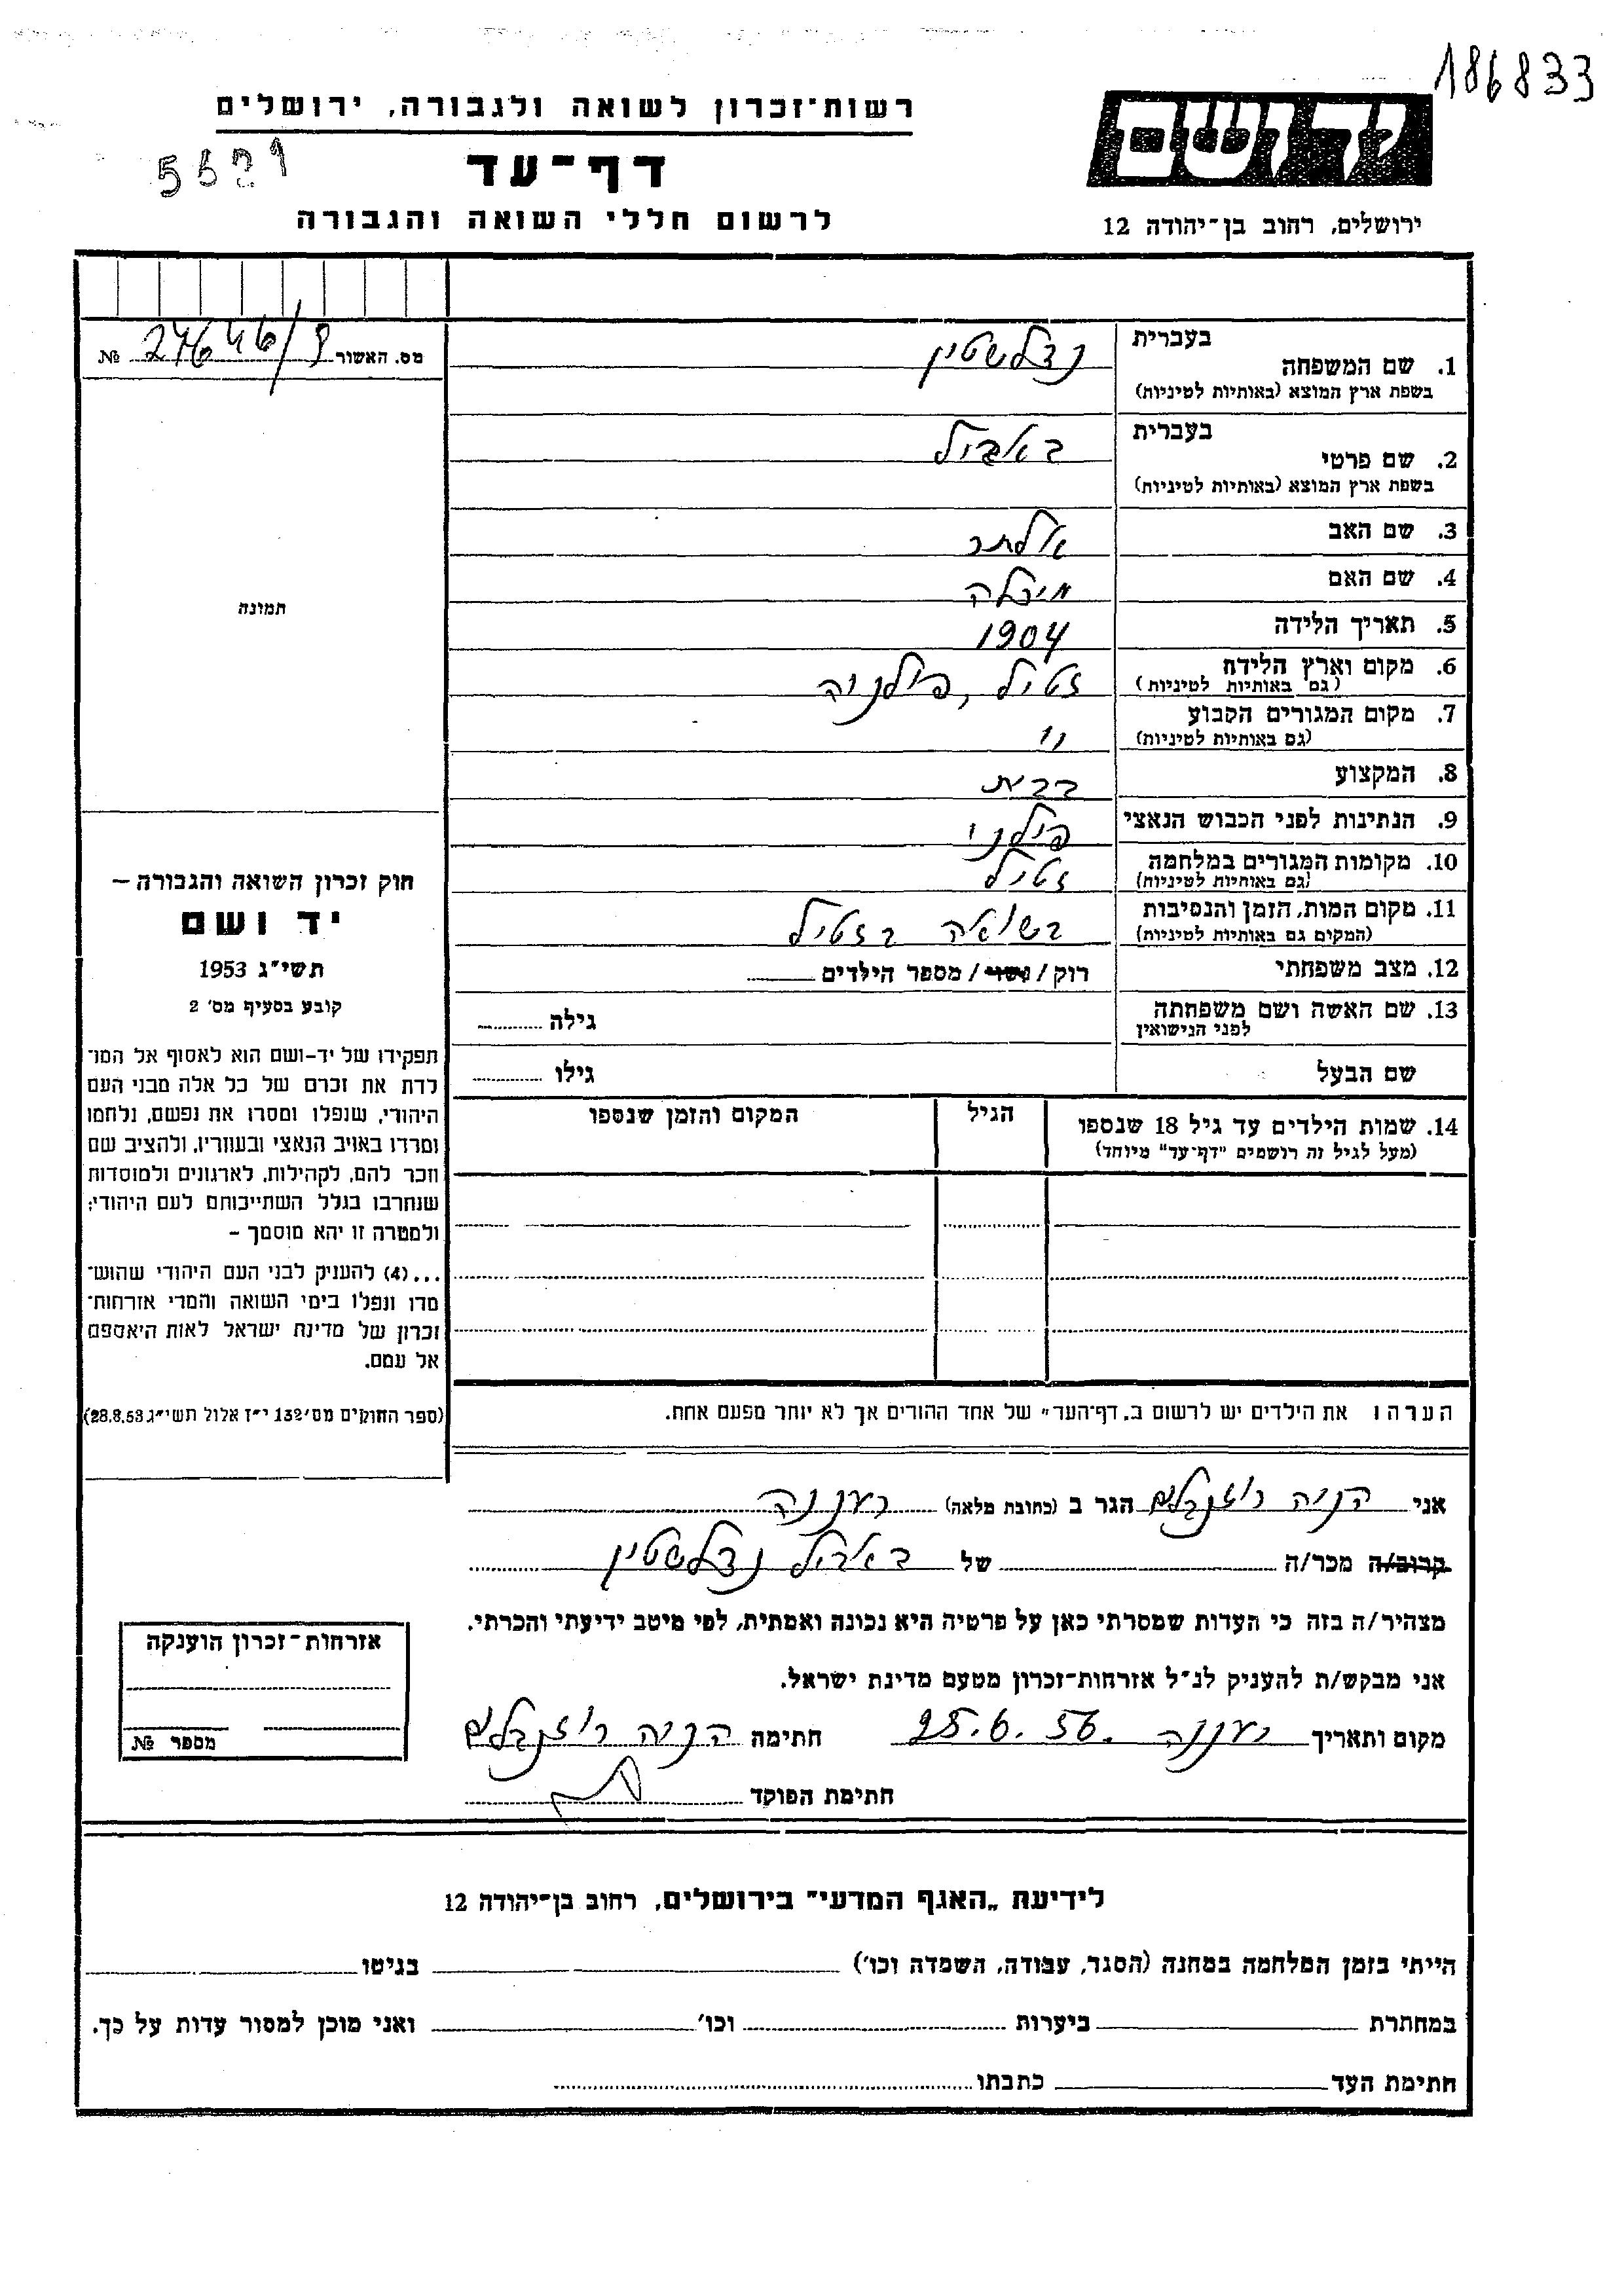 186833
ידושם
רשות־זכרון לשואה ולגבורה, ירושלים
דף־עד
לרשום חללי השואה והגבורה
ירושלים, רחוב בן־יהודה 12
מס. האשור 27646/9 №
בעברית
1. שם המשפחה נדלשטין
בשפת ארץ המוצא (באותיות לטיניות)
בעברית
2. שם פרטי
בשפת ארץ המוצא (באותיות לטיניות)
3. שם האב אלתר
4. שם האם
5. תאריך הלידה 1904
6. מקום וארץ הלידה זטיל, פולניה
(גם באותיות לטיניות)
7. מקום המגורים הקבוע "
(גם באותיות לטיניות)
8. המקצוע
9. הנתינות לפני הכבוש הנאצי פולני
10. מקומות המגורים במלחמה זטיל
(גם באותיות לטיניות)
11. מקום המות, הזמן והנסיבות בשואה בזטיל
(המקום גם באותיות לטיניות)
12. מצב משפחתי רוק / נשוי / מספר הילדים
13. שם האשה ושם משפחתה גילה
לפני הנישואין
שם הבעל גילו
14. שמות הילדים עד גיל 18 שנספו הגיל המקום והזמן שנספו
(מעל לגיל זה רושמים "דף־עד" מיוחד)
הערה: את הילדים יש לרשום ב„דף־העד" של אחד ההורים אך לא יותר מפעם אחת.
תמונה
חוק זכרון השואה והגבורה –
יד ושם
תשי"ג 1953
קובע בסעיף מס' 2
תפקידו של יד-ושם הוא לאסוף אל המו־
לדת את זכרם של כל אלה מבני העם
היהודי, שנפלו ומסרו את נפשם, נלחמו
ומרדו באויב הנאצי ובעוזריו, ולהציב שם
וזכר להם, לקהילות, לארגונים ולמוסדות
שנחרבו בגלל השתייכותם לעם היהודי;
ולמטרה זו יהא מוסמך –
...(4) להעניק לבני העם היהודי שהוש־
מדו ונפלו בימי השואה והמרי אזרחות־
זכרון של מדינת ישראל לאות היאספם
אל עמם.
(ספר החוקים מס' 132 י"ז אלול תשי"ג 28.8.53)
אני הניה רוזנבלום הגר ב (כתובת מלאה) רעננה
קרוב/ה מכר/ה של נדלשטין
מצהיר/ה בזה כי העדות שמסרתי כאן על פרטיה היא נכונה ואמתית, לפי מיטב ידיעתי והכרתי.
אני מבקש/ת להעניק לנ"ל אזרחות־זכרון מטעם מדינת ישראל.
מקום ותאריך רעננה 25.6.56. חתימה הניה רוזנבלום
חתימת הפוקד
אזרחות־זכרון הוענקה
מספר №
לידיעת „האגף המדעי" בירושלים, רחוב בן־יהודה 12
הייתי בזמן המלחמה במחנה (הסגר, עבודה, השמדה וכו') בגיטו
במחתרת ביערות וכו' ואני מוכן למסור עדות על כך.
חתימת העד כתבתו